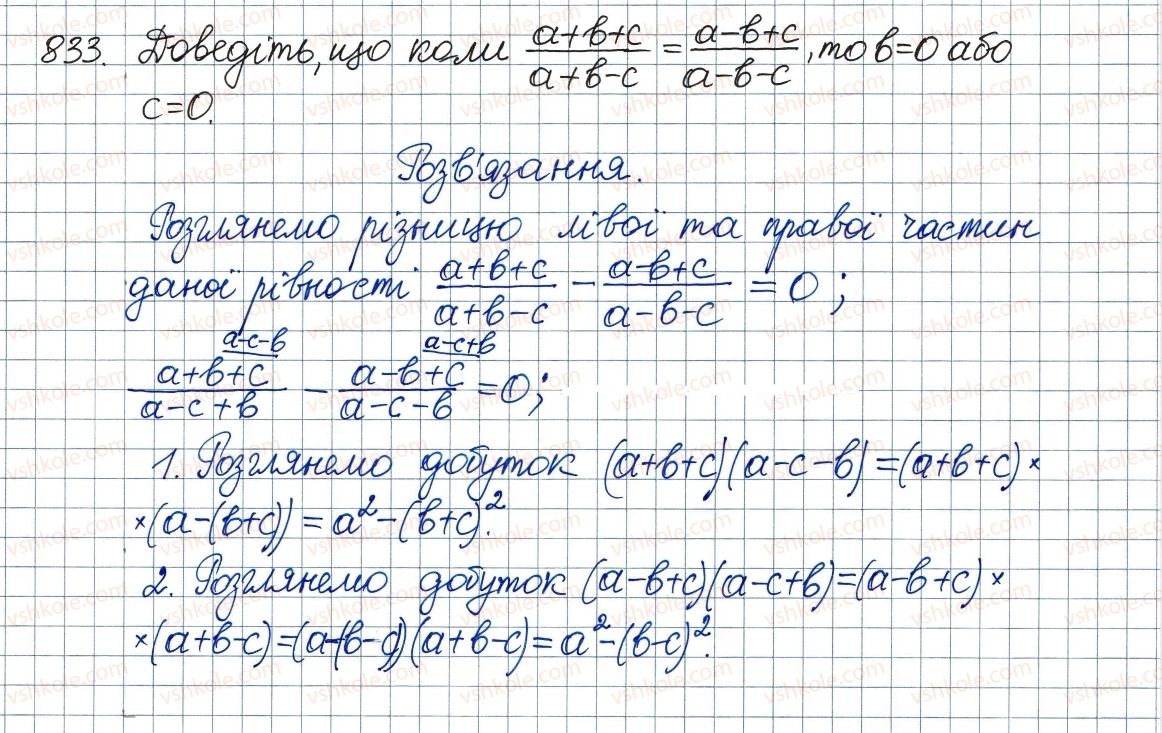 833. Доведіть, що коли (a+b+c)/(a+b-c) = (a-b+c)/(a-b-c), то b=0 або
c=0.
Розв'язання.
Розглянемо різницю лівої та правої частин
даної рівності (a+b+c)/(a+b-c) - (a-b+c)/(a-b-c) = 0;
a-c-b a-c+b
(a+b+c)/(a-c+b) - (a-b+c)/(a-c-b) = 0;
1. Розглянемо добуток (a+b+c)(a-c-b)=(a+b+c)×
×(a-(b+c)) = a²-(b+c)².
2. Розглянемо добуток (a-b+c)(a-c+b)=(a-b+c)×
×(a+b-c)=(a-(b-c))(a+b-c)=a²-(b-c)².